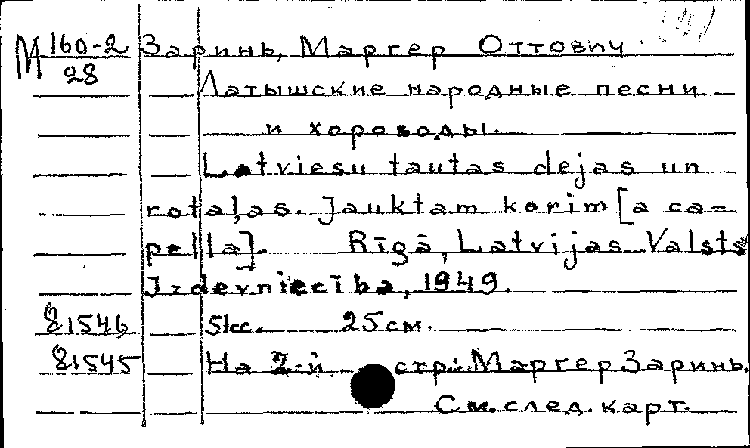 М 160-2 Заринь, Маргер Оттович.
28
Латышские народные песни
и хороводы.
Latviešu tautas dejas un
rotaļas. Jauktam korim [a ca=
pella]. Rīgā, Latvijas Valsts
Izdevniecība, 1949.
81546 51 с. 25 см.
81545 На 2-й стр.: Маргер Заринь.
См. след. карт.